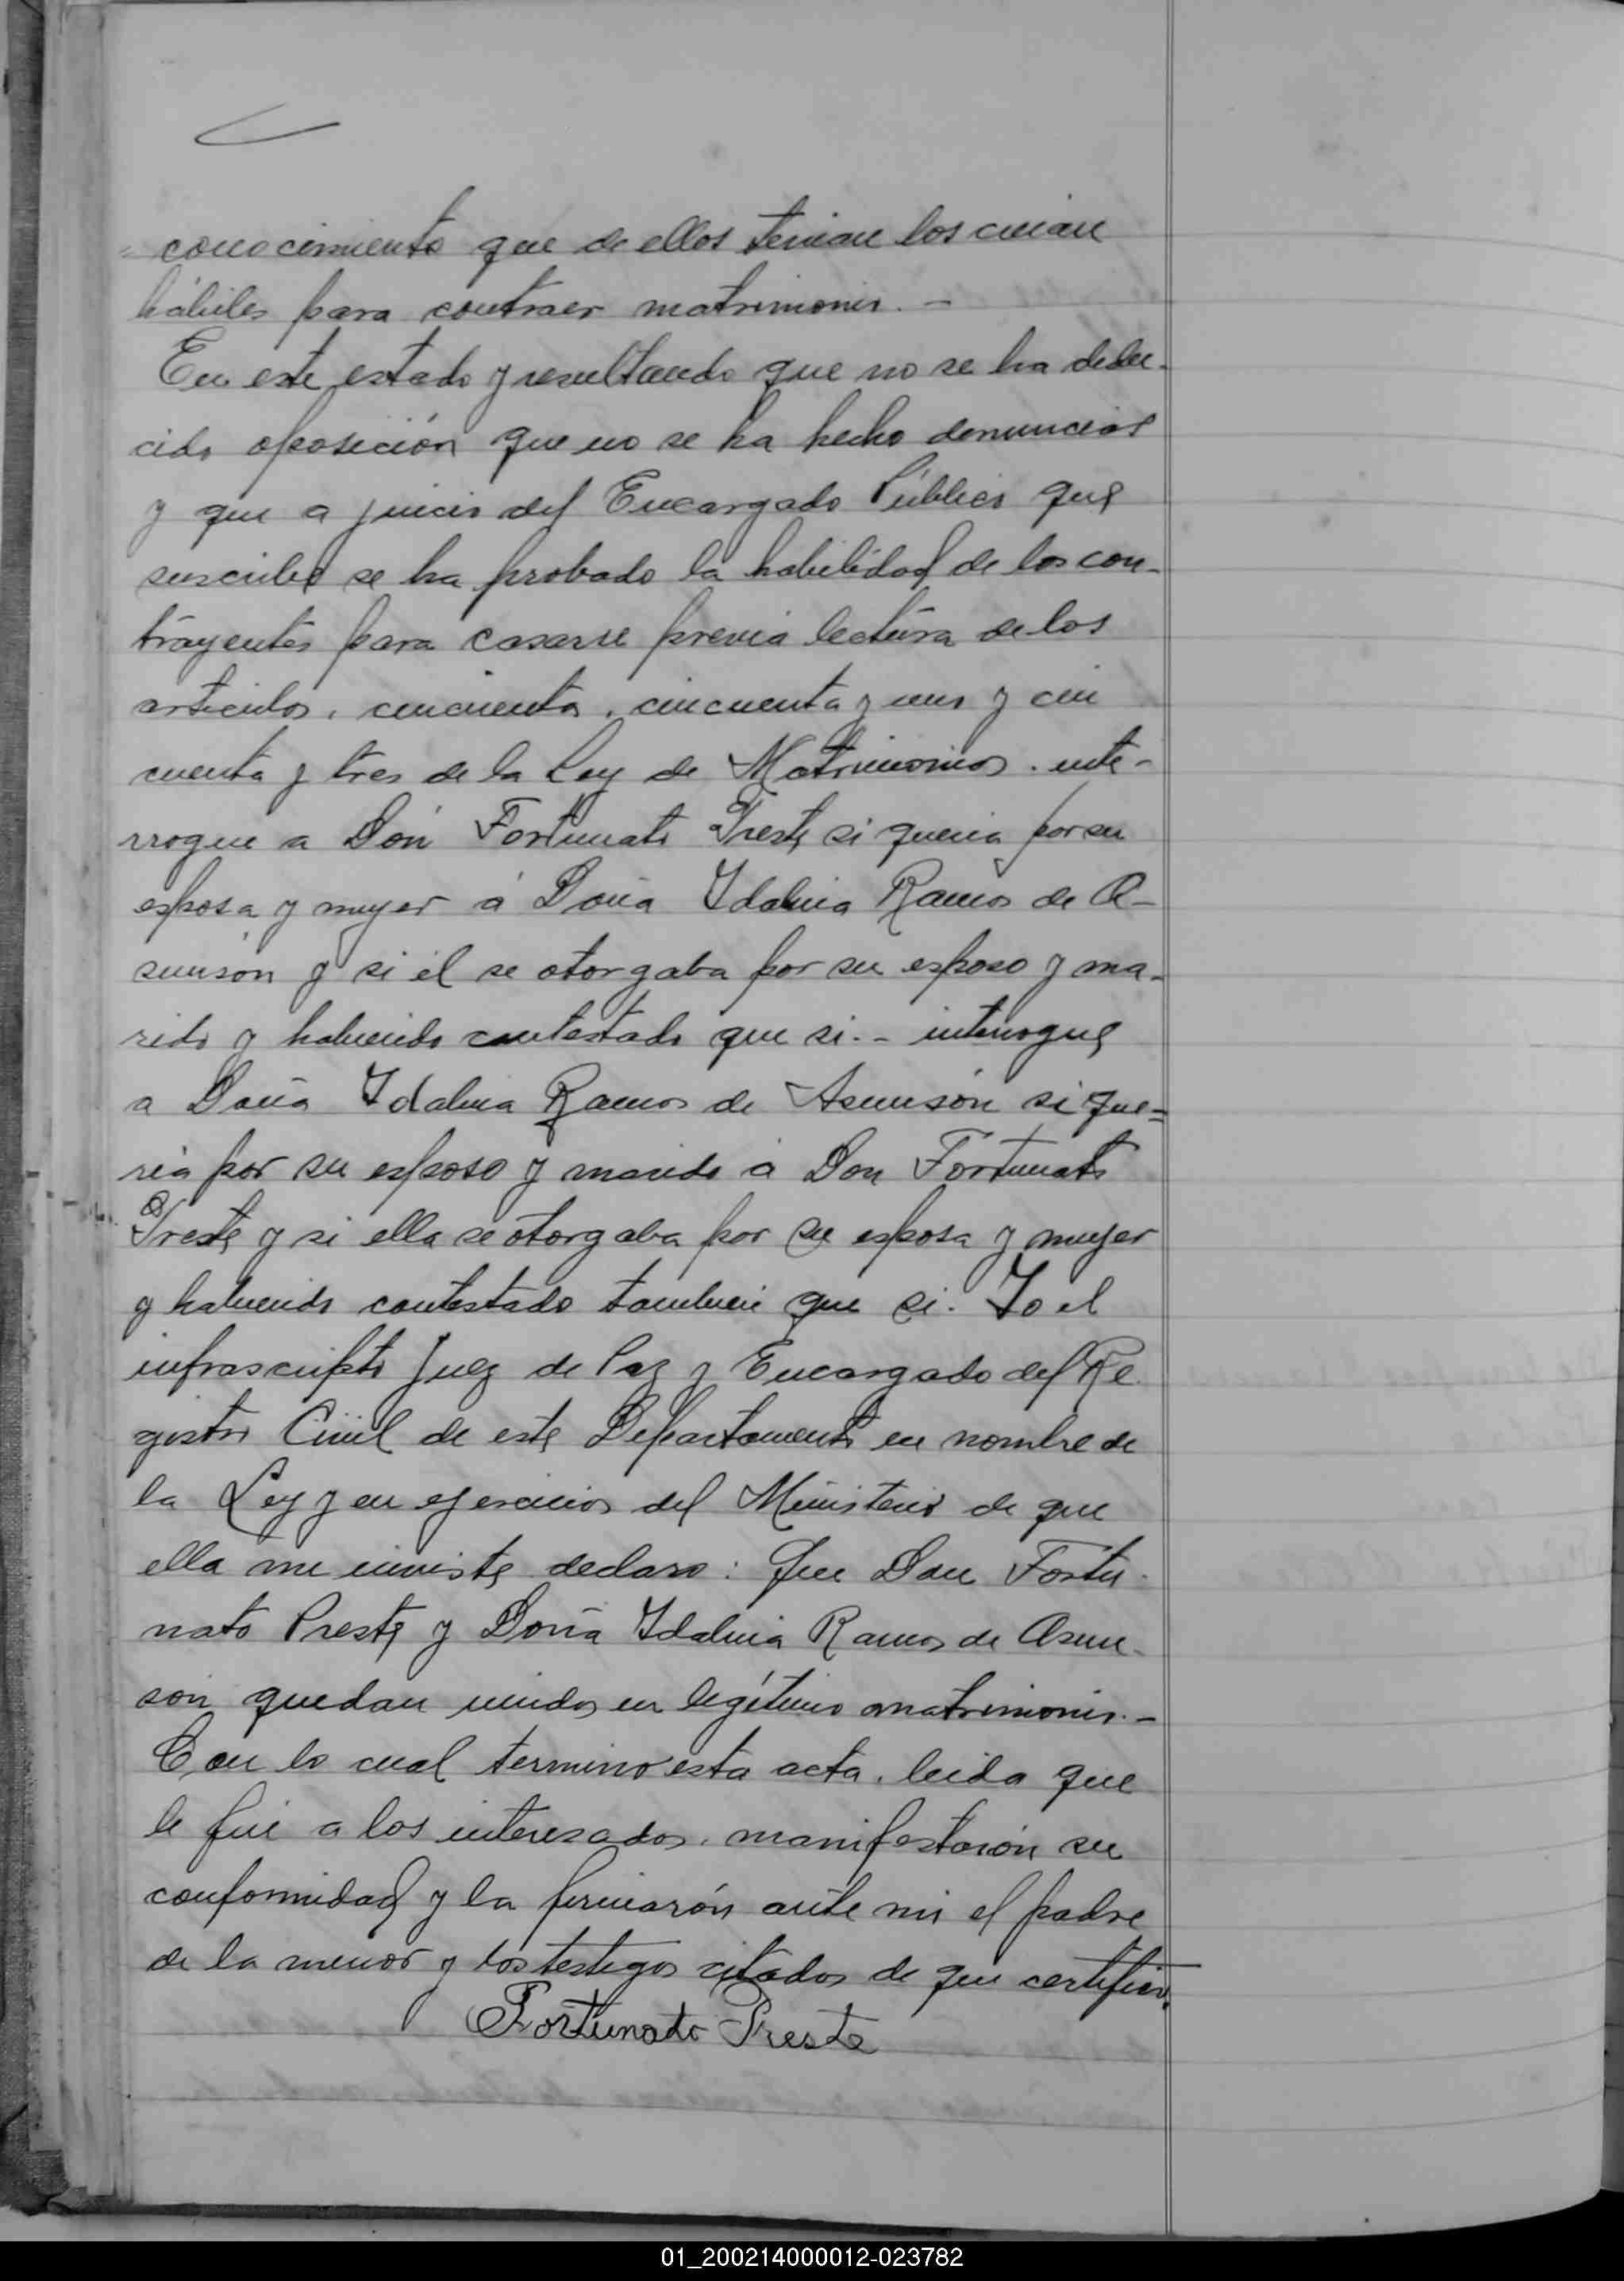 conocimiento que de ellos tenian los creian
hábiles para contraer matrimonio. -
En este estado y resultando que no se ha dedu-
cido oposición que no se ha hecho denuncias
y que a juicio del Encargado Público que
suscribe se ha probado la habilidad de los con-
trayentes para casarse previa lectura de los
articulos, cincuenta, cincuenta y uno y cin
cuenta y tres de la Ley de Matrimonios. inte-
rrogue a Don Fortunato Preste si queria por su
esposa y mujer á Doña Idalina Ramos de A-
sunsón y si él se otorgaba por su esposo y ma-
rido y habiendo contestado que si. - interrogue
a Doña Idalina Ramos de Asunsón si que=
ria por su esposo y marido á Don Fortunato
Preste y si ella se otorgaba por su esposa y mujer
y habiendo contestado tambien que si. Yo el
infrascripto Juez de Paz y Encargado del Re
gistro Civil de este Departamento en nombre de
la Ley y en ejercicios del Ministerio de que
ella me inviste declaro: Que Don Fortu-
nato Preste y Doña Idalina Ramos de Asun-
són quedan unidos en legítimo matrimonio. -
Con lo cual termino esta acta, leida que
le fué a los interesados, manifestarón su
conformidad y la firmarón ante mi el padre
de la menor y los testigos citados de que certifico.
Fortunato Preste
01_200214000012-023782